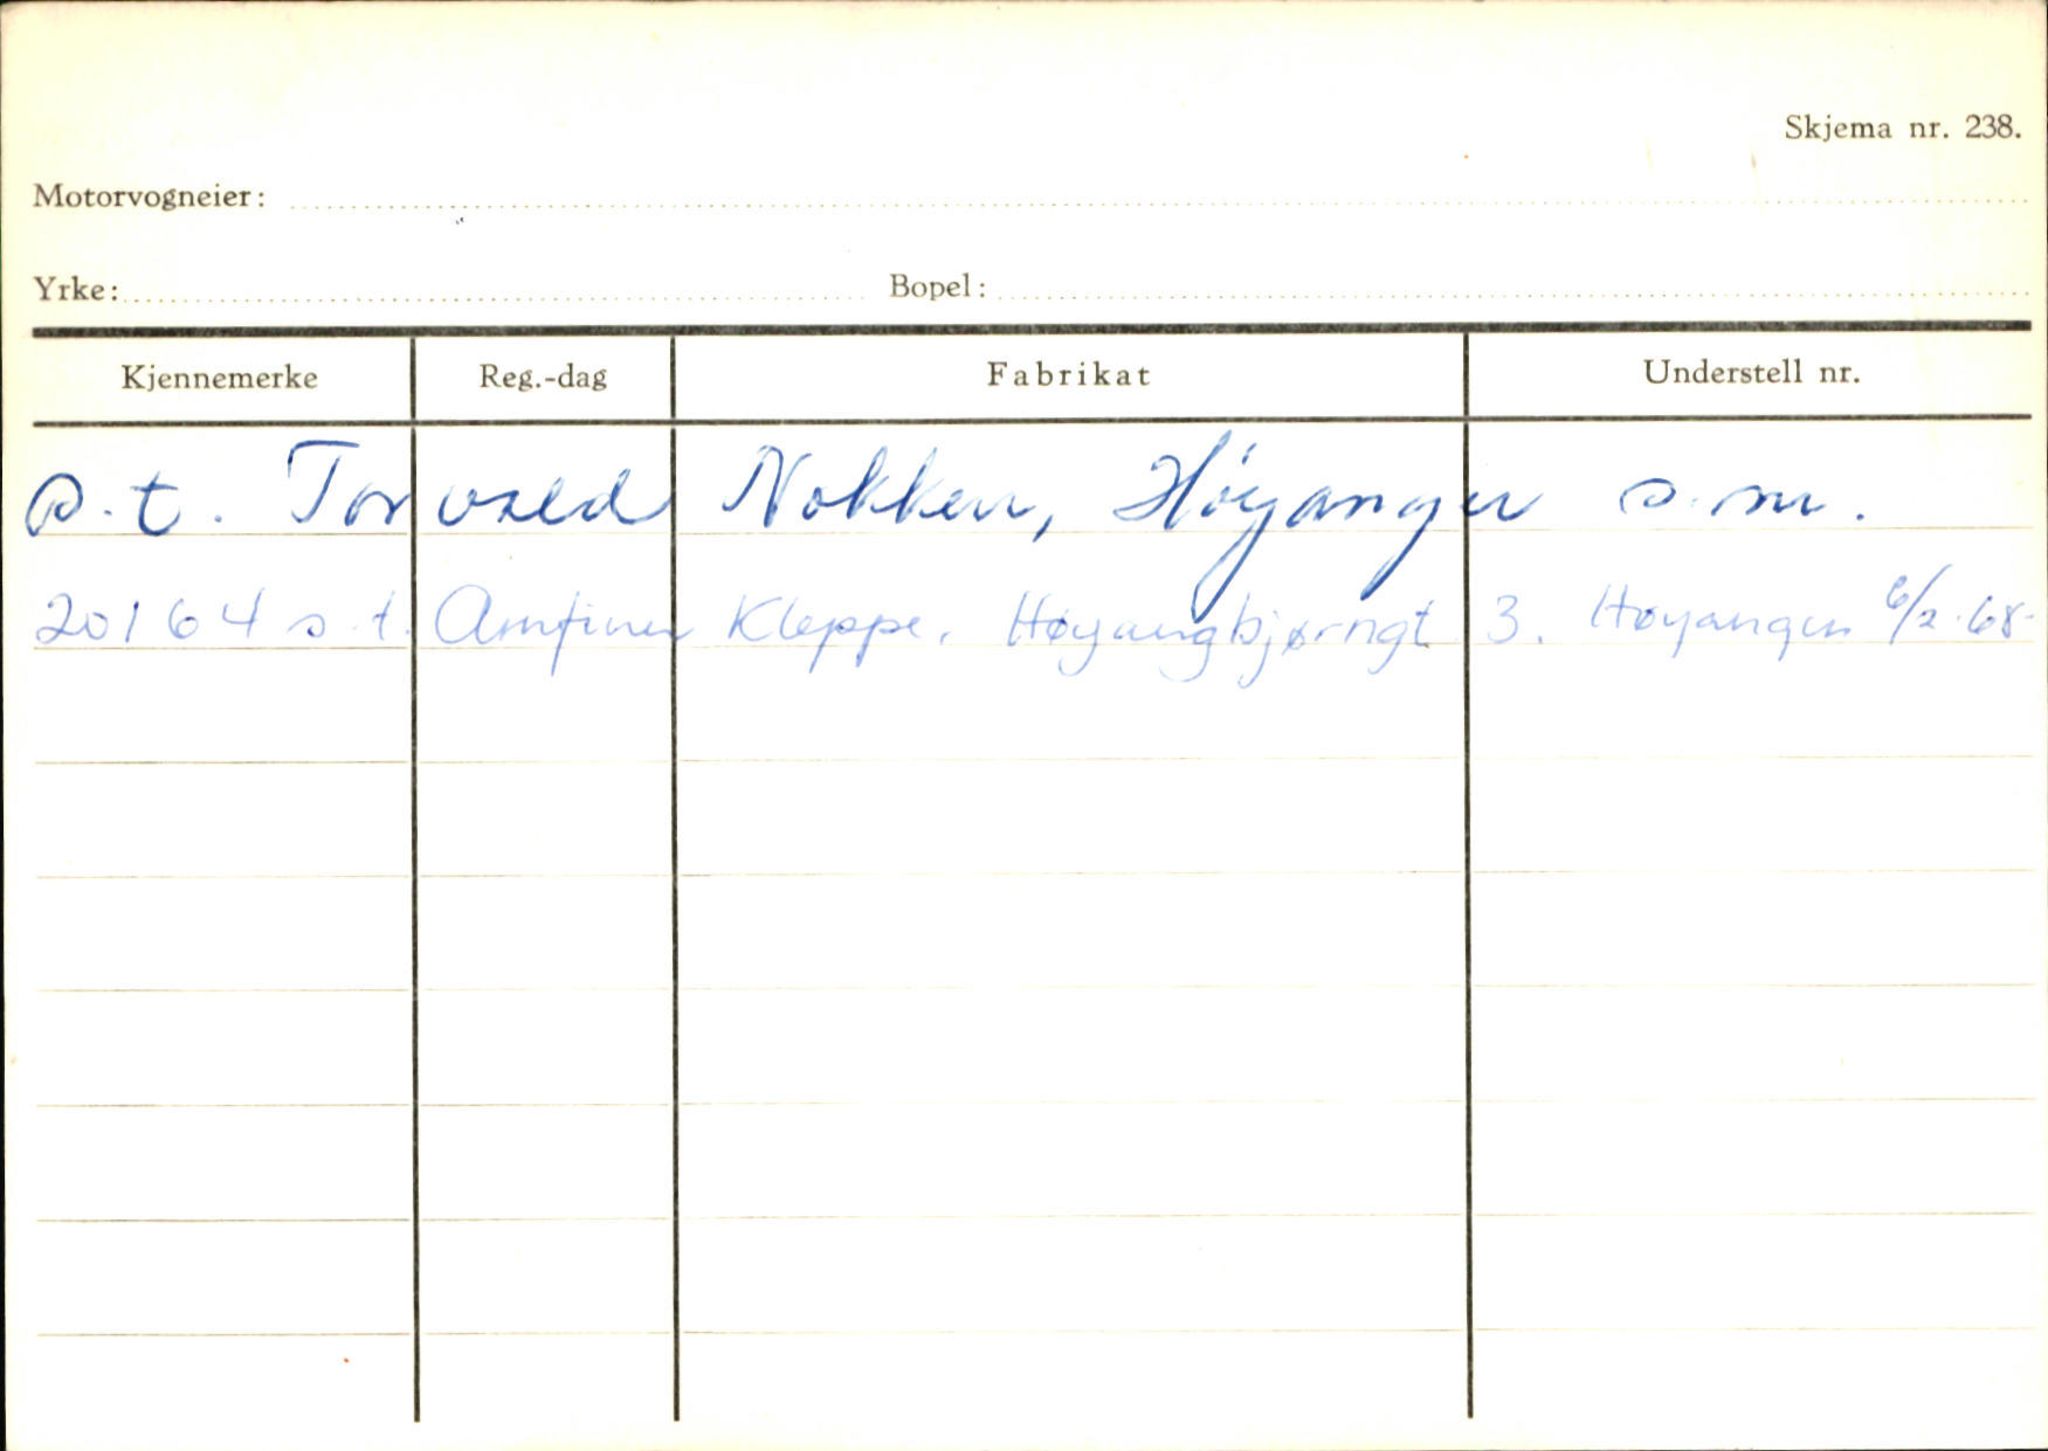 Skjema nr. 238.
Motorvogneier:
Yrke: Bopel:
Kjennemerke Reg.-dag Fabrikat Understell nr.
s.t. Torvald Nokken, Høyanger s.m.
20164 s.t. Arnfinn Kleppe, Høyangbjørngt 3. Høyanger 6/2-68-